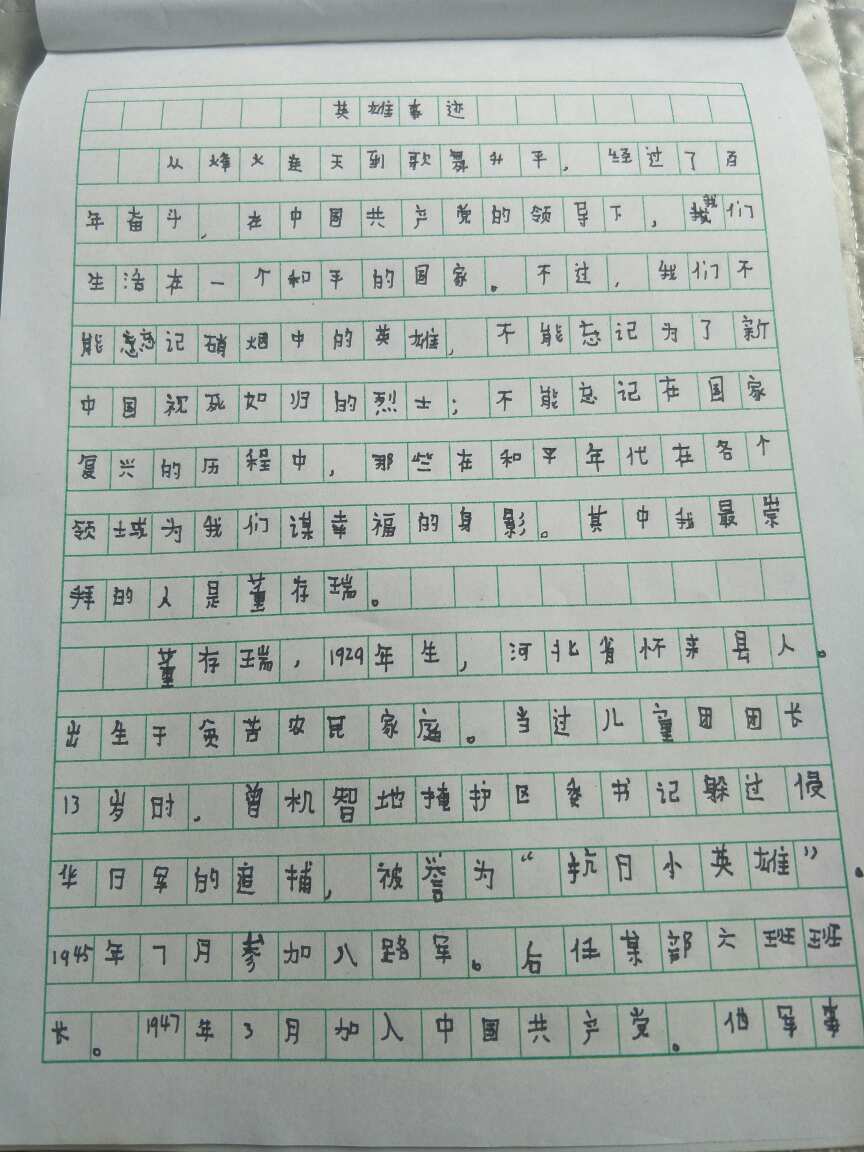 英雄事迹
从烽火连天到歌舞升平，经过了百
年奋斗，在中国共产党的领导下，我们
生活在一个和平的国家。不过，我们不
能忘记硝烟中的英雄，不能忘记为了新
中国视死如归的烈士；不能忘记在国家
复兴的历程中，那些在和平年代在各个
领域为我们谋幸福的身影。其中我最崇
拜的人是董存瑞。
董存瑞，1929年生，河北省怀来县人。
出生于贫苦农民家庭。当过儿童团团长
13岁时．曾机智地掩护区委书记躲过侵
华日军的追捕，被誉为“抗日小英雄”。
1945年7月参加八路军。后任某部六班班
长。1947年3月加入中国共产党。他军事